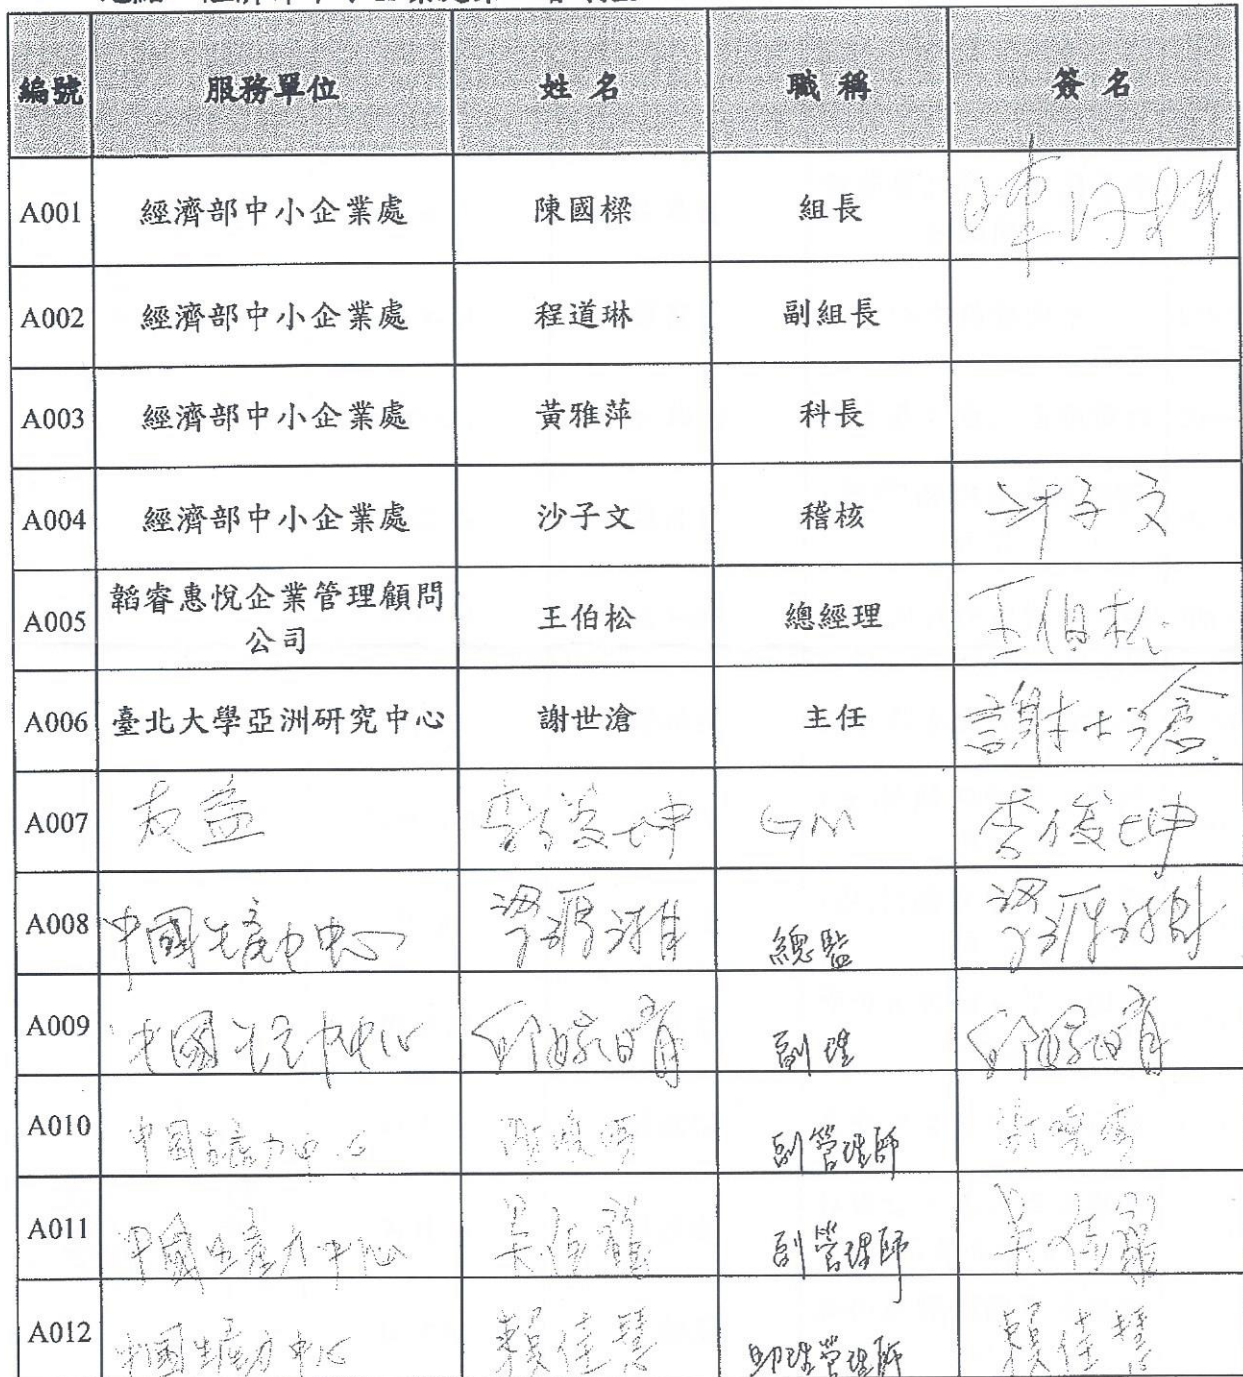 編號 服務單位 姓名 職稱 簽名
A001 經濟部中小企業處 陳國樑 組長
A002 經濟部中小企業處 程道琳 副組長
A003 經濟部中小企業處 黃雅萍 科長
A004 經濟部中小企業處 沙子文 稽核 沙子文
A005 韜睿惠悅企業管理顧問
公司 王伯松 總經理 王伯松
A006 臺北大學亞洲研究中心 謝世滄 主任 謝世滄
A007 友益 GM 李俊坤
A008 中國生產力中心 總監
A009 中國生產力中心 副理
A010 中國生產力中心 副管理師
A011 中國生產力中心 吳佳龍 副管理師
A012 中國生產力中心 賴佳慧 助理管理師 賴佳慧